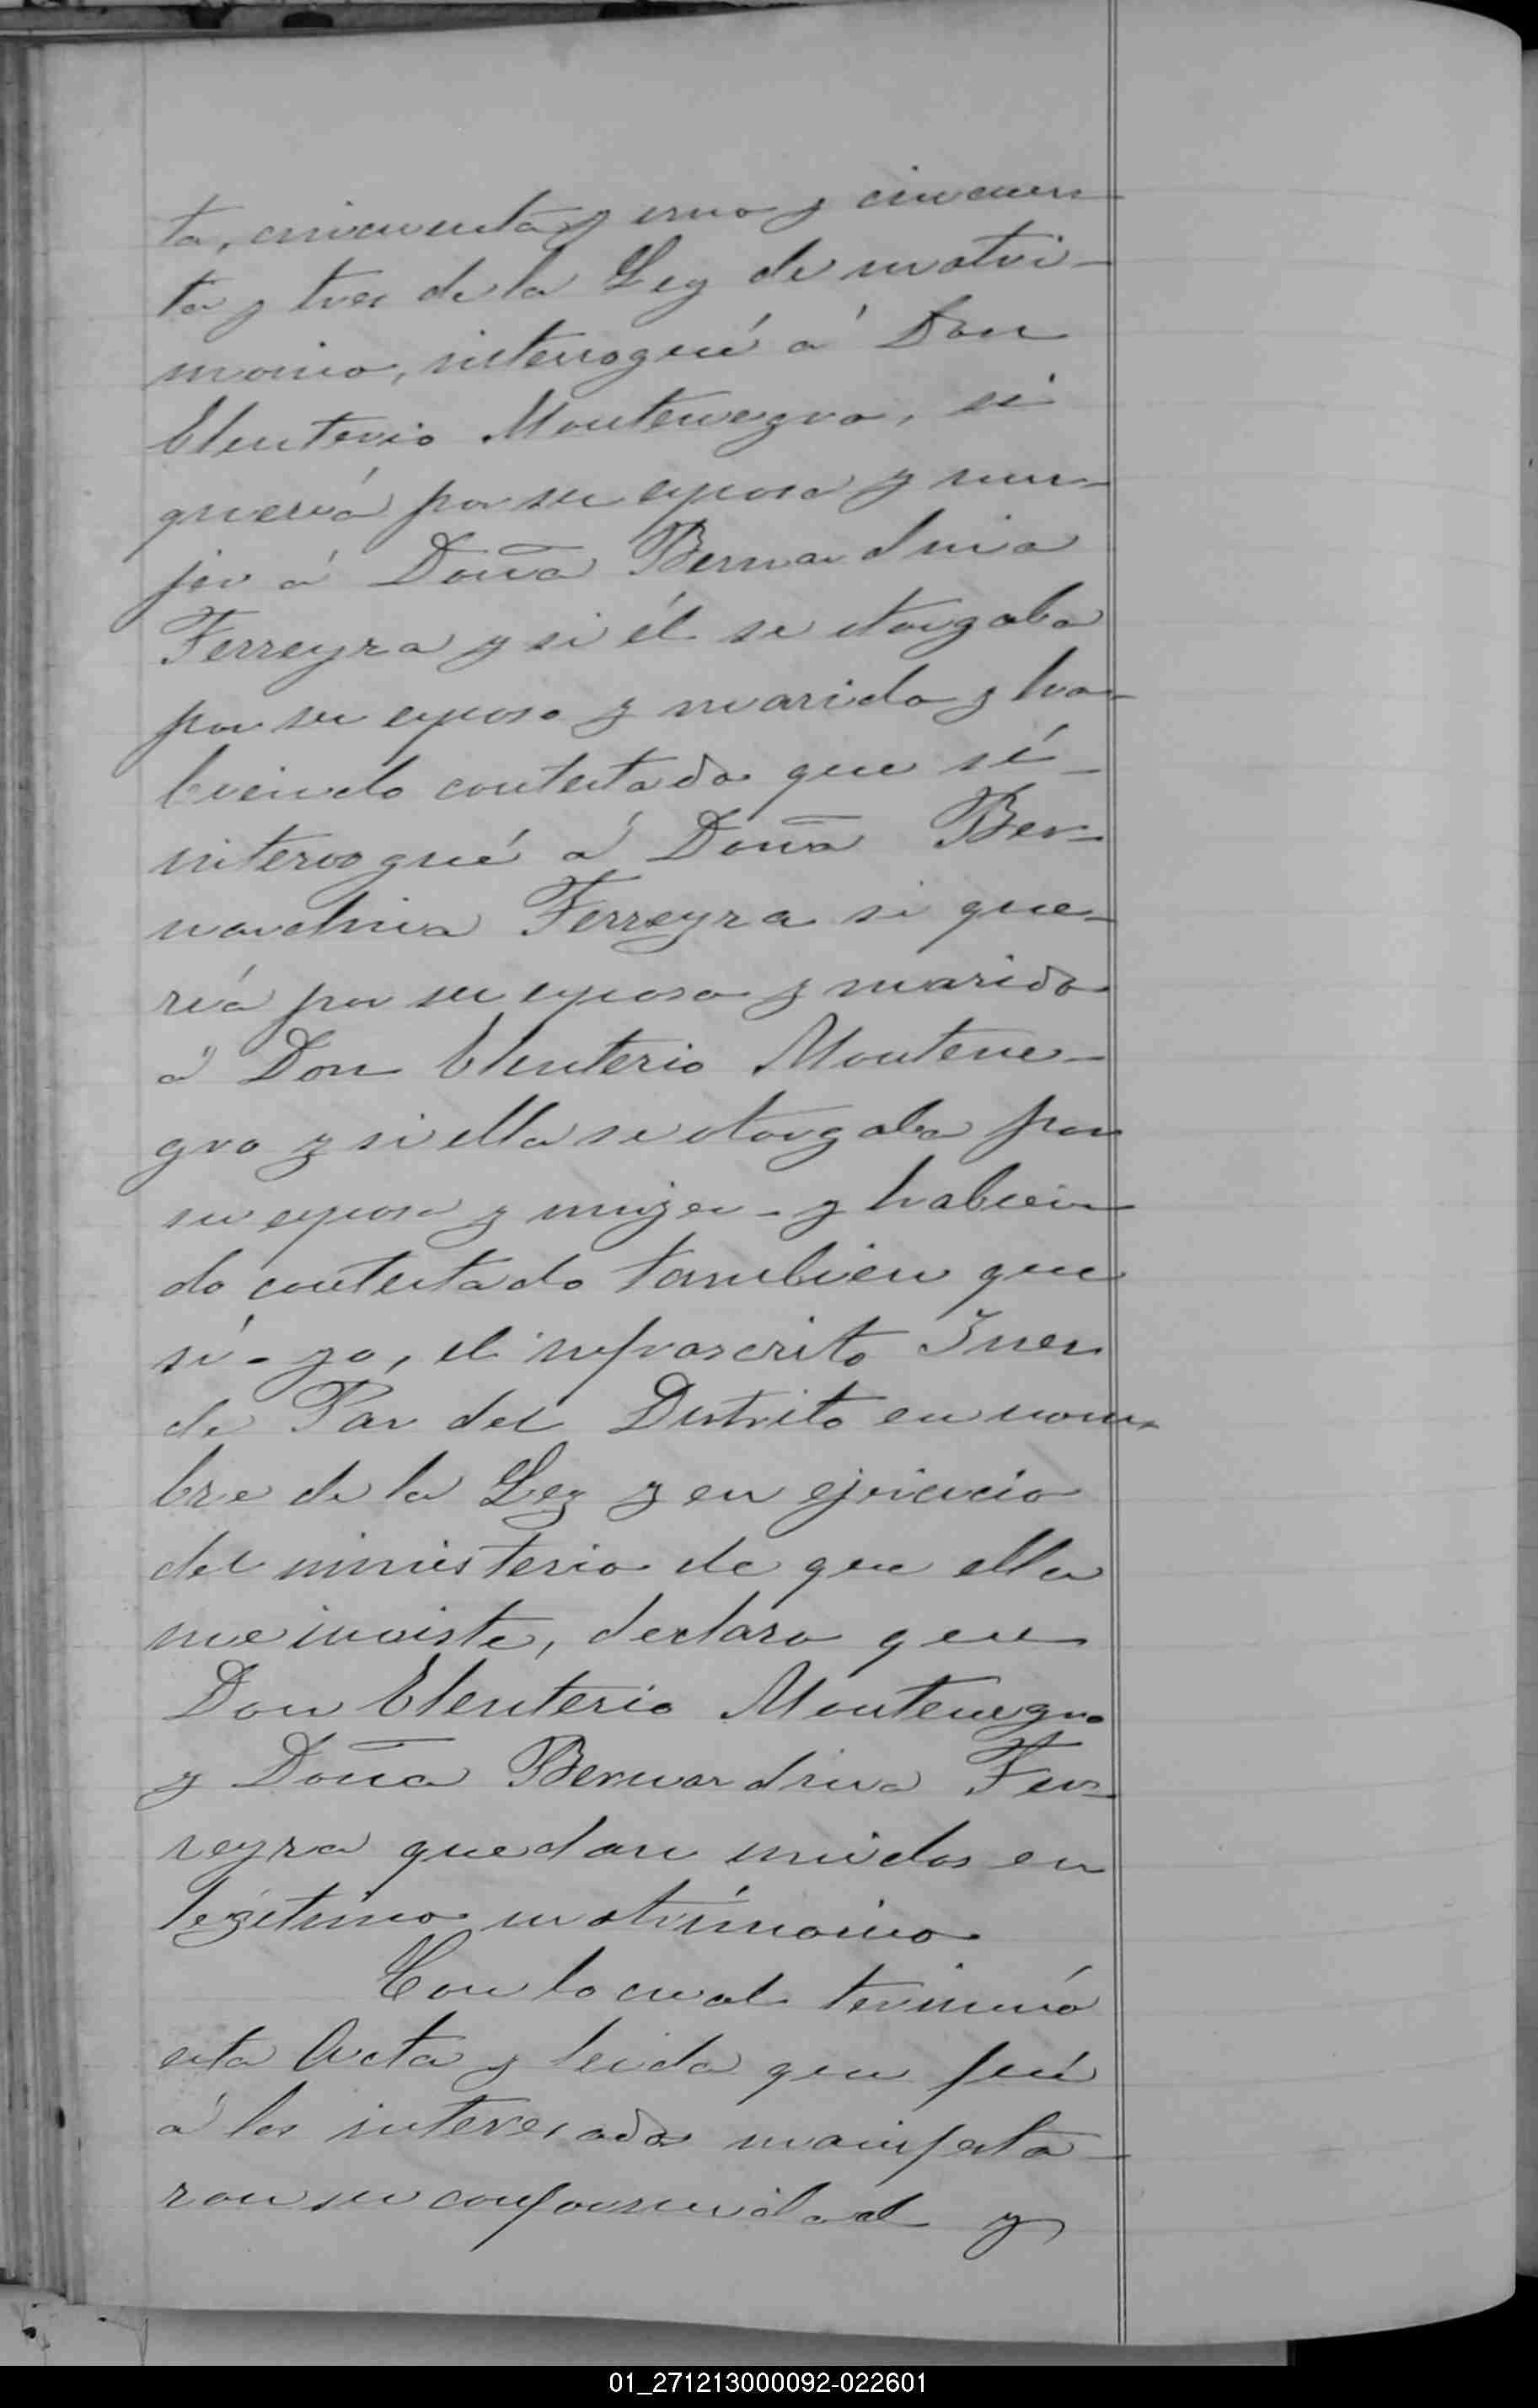 ta, cincuenta y uno y cincuen-
ta y tres de la Ley de matri-
monio, interrogué á Don
Eleuterio Montenegro, si
quería por su esposa y mu-
jer á Doña Bernardina
Ferreyra y si él se otorgaba
por su esposo y marido y ha-
biendo contestado que sí -
interrogué á Doña Ber-
nardina Ferreyra si que-
ría por su esposo y marido
á Don Eleuterio Montene-
gro y si ella se otorgaba por
su esposa y mujer - y habien
do contestado tambien que
sí - yo, el infrascrito Juez
de Paz del Distrito en nom-
bre de la Ley y en ejercicio
del ministerio de que ella
me inviste, declaro que
Don Eleuterio Montenegro
y Doña Bernardina Fer-
reyra quedan unidos en
legítimo matrimonio
Con lo cual terminó
esta Acta y leida que fué
á los interesados manifesta-
ron su conformidad y
01_271213000092-022601